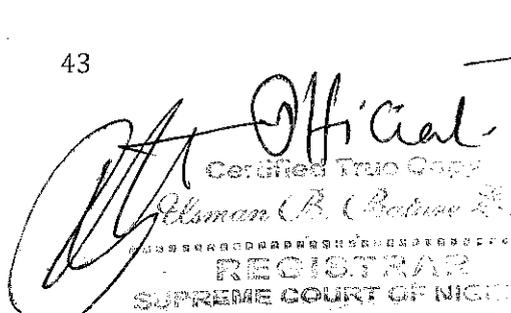 43
Official
Certified True Copy
Usman B.
REGISTRAR
SUPREME COURT OF NIG